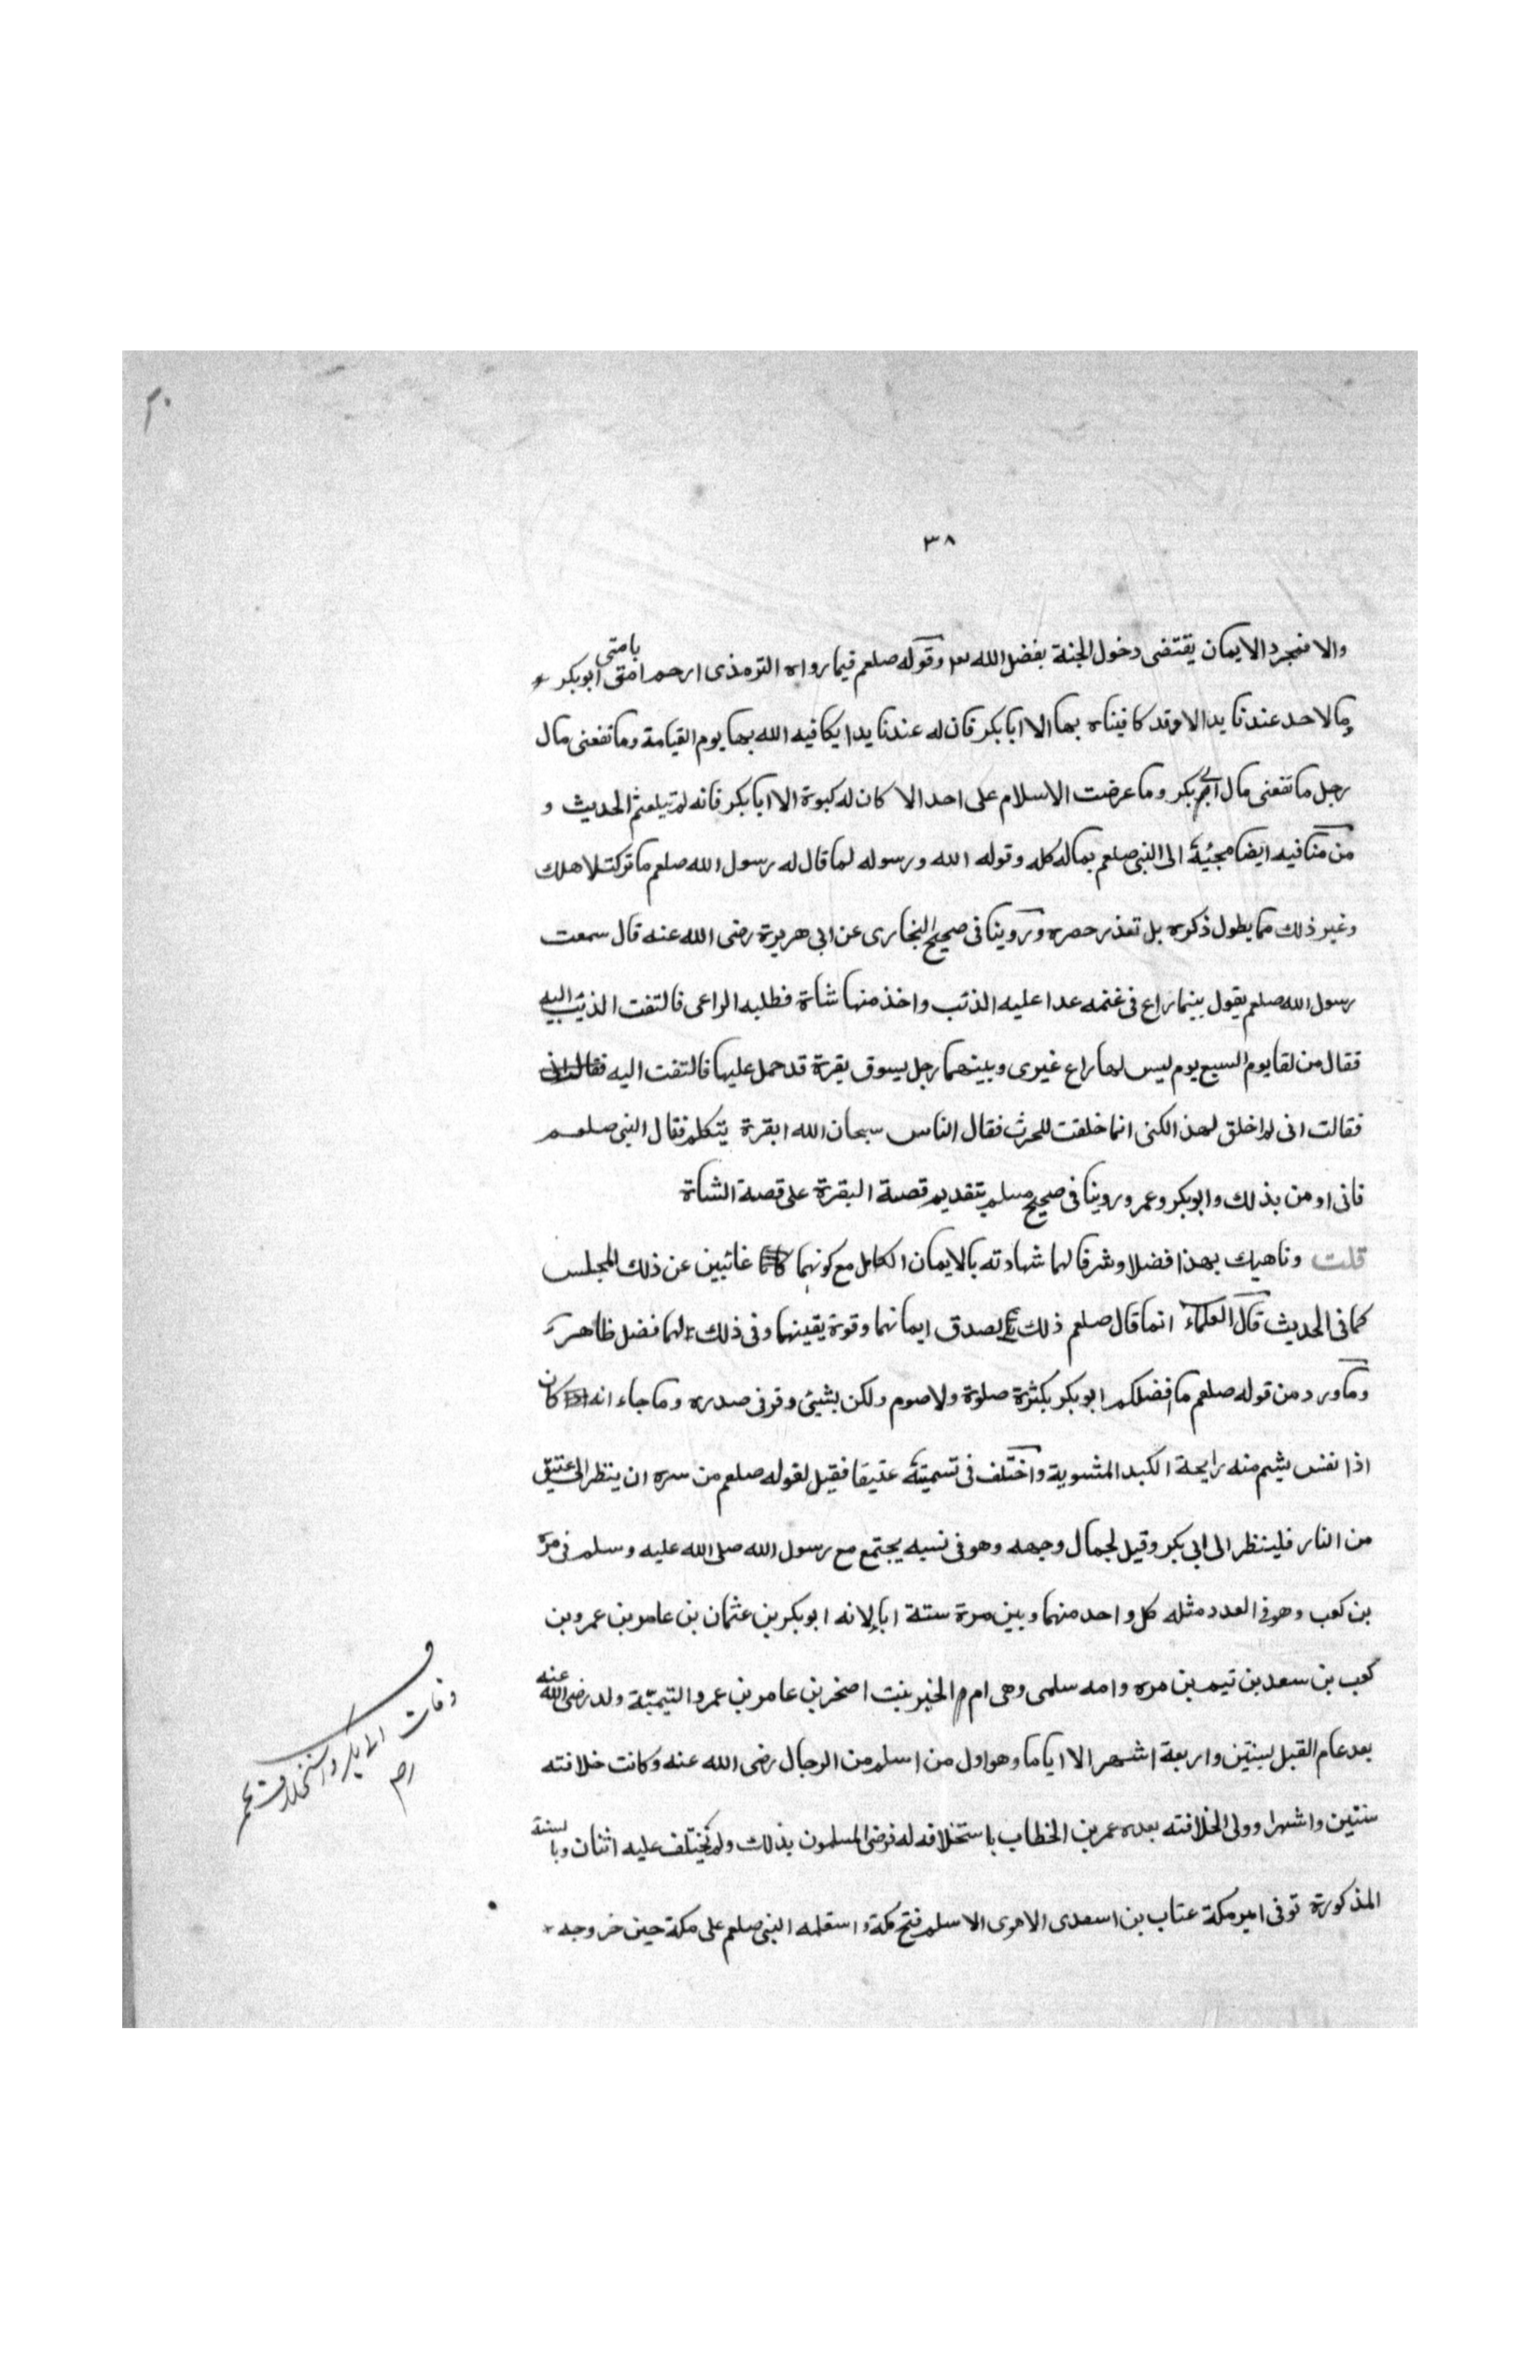 ٣٨
والا فمجرد الايمان يقتضى دخول الجنة بفضل الله تعا وقوله صلعم فيما رواه الترمذى ارحم امتى بامتى ابوبكر
وما لاحد عندنا يد الا وقد كافيناه بها الا ابا بكر فان له عندنا يدا يكافيه الله بها يوم القيامة وما نفعنى مال
رجل ما نفعنى مال ابى بكر وما عرضت الاسلام على احد الا كان له كبوة الا ابا بكر فانه لم يتلعثم الحديث و
من مناقبه ايضا مجيئه الى النبى صلعم بماله كله وقوله الله ورسوله لما قال له رسول الله صلعم ما تركت لاهلك
وغير ذلك مما يطول ذكره بل تعذر حصره وروينا فى صحيح البخارى عن ابى هريرة رضى الله عنه قال سمعت
رسول الله صلعم يقول بينما راع فى غنمه عدا عليه الذئب واخذ منها شاة فطلبه الراعى فالتفت الذئب اليه
فقال من لها يوم السبع يوم ليس لها راع غيرى وبينهما رجل يسوق بقرة قد حمل عليها فالتفت اليه
فقالت انى لم اخلق لهذا لكنى انما خلقت للحرث فقال الناس سبحان الله ابقرة يتكلم فقال النبى صلعم
فانى اومن بذلك وابوبكر وعمر وروينا فى صحيح مسلم بتقديم قصة البقرة على قصة الشاة
قلت وناهيك بهذا فضلا وشرفا لهما شهادته بالايمان الكامل مع كونهما غائبين عن ذلك المجلس
كما فى الحديث قال العلماء انما قال صلعم ذلك بصدق ايمانهما وقوة يقينهما وفى ذلك لهما فضل ظاهر
وما ورد من قوله صلعم ما فضلكم ابوبكر بكثرة صلوة ولا صوم ولكن بشيئ وقر فى صدره وما جاء انه كان
اذا نفس يشم منه رايحة الكبد المشوية واختلف فى تسميته عتيقا فقيل لقوله صلعم من سره ان ينظر الى عتيق
من النار فلينظر الى ابى بكر وقيل لجمال وجهه وهو فى نسبه يجتمع مع رسول الله صلى الله عليه وسلم فى مرة
بن كعب وهو فى العدد مثله كل واحد منهما وبين مرة ستة ابا لانه ابوبكر بن عثمان بن عامر بن عمرو بن
كعب بن سعد بن تيم بن مره وامه سلمى وهى ام الخير بنت اصخر بن عامر بن عمرو التيمية ولد رضى الله عنه
بعد عام الفيل بسنتين واربعة اشهر الا اياما وهو اول من اسلم من الرجال رضى الله عنه وكانت خلافته
سنتين واشهرا وولى الخلافته بعده عمر بن الخطاب باستخلافه له فرضى المسلمون بذلك ولم يختلف عليه اثنان وبا لسنة
المذكورة توفى امير مكة عتاب بن اسعدى الاموى الاسلم فتح مكة واستعلمه النبى صلعم على مكة حين خروجه